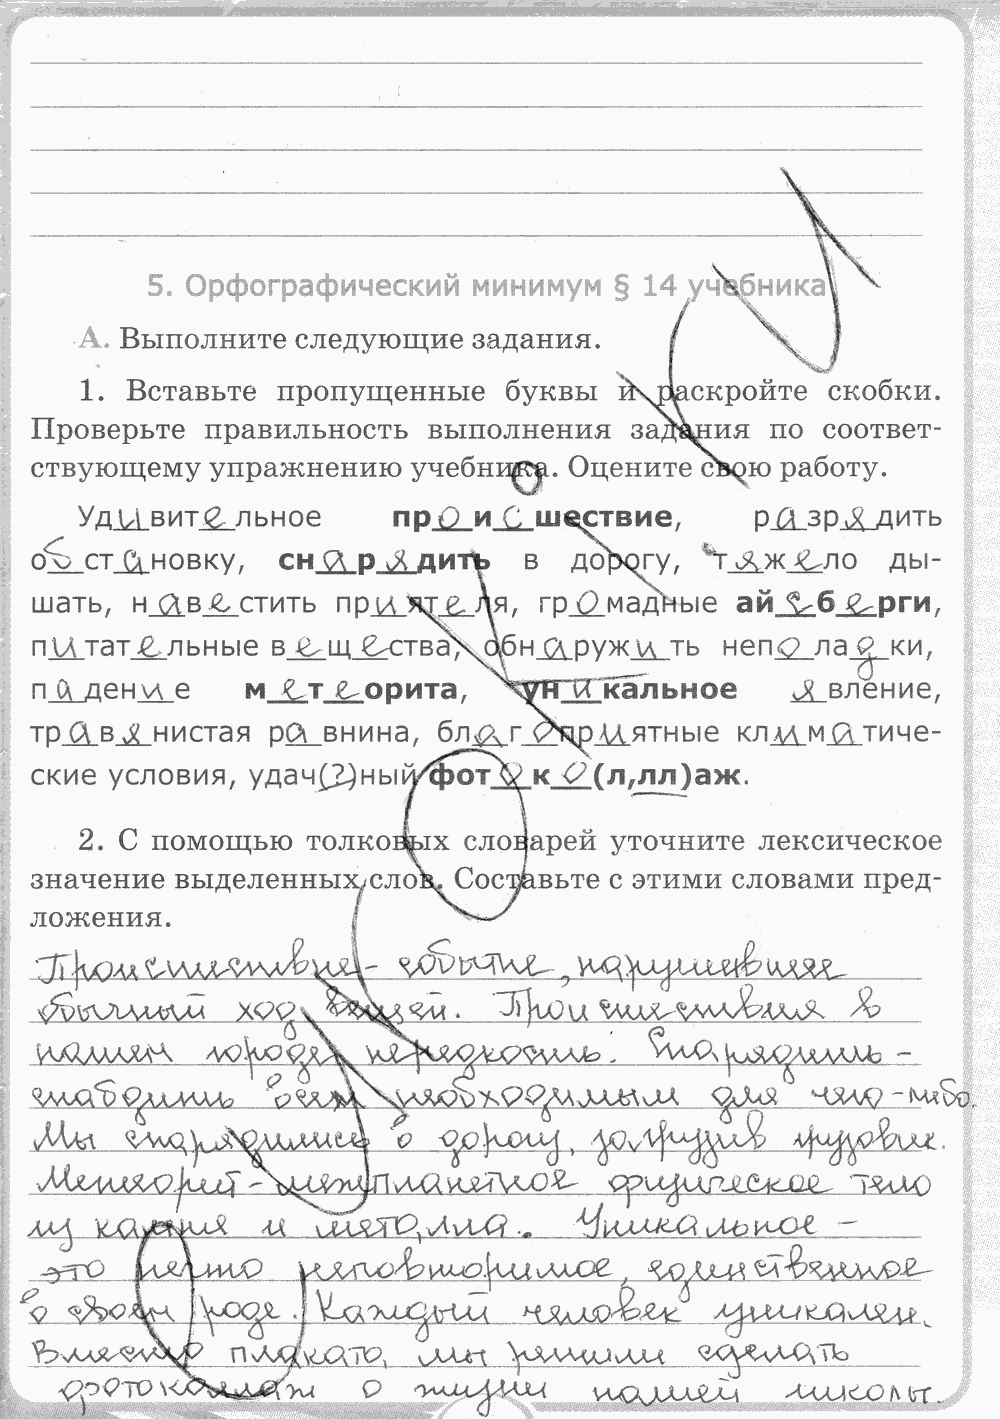 5. Орфографический минимум § 14 учебника
А. Выполните следующие задания.
1. Вставьте пропущенные буквы и раскройте скобки.
Проверьте правильность выполнения задания по соответ-
ствующему упражнению учебника. Оцените свою работу.
Удивительное происшествие, разрядить
обстановку, снарядить в дорогу, тяжело ды-
шать, навестить приятеля, громадные айсберги,
питательные вещества, обнаружить неполадки,
падение метеорита, уникальное явление,
травянистая равнина, благоприятные климатиче-
ские условия, удач(?)ный фотоко(л,лл)аж.
2. С помощью толковых словарей уточните лексическое
значение выделенных слов. Составьте с этими словами пред-
ложения.
Происшествие - событие, нарушившее
обычный ход вещей. Происшествия в
нашем городе нередкость. Снарядить -
снабдить всем необходимым для чего-либо.
Мы снарядились в дорогу, загрузив грузовик.
Метеорит - межпланетное физическое тело
из камня и металла. Уникальное -
это нечто неповторимое, единственное
в своем роде. Каждый человек уникален.
Вместо плаката мы решили сделать
фотоколлаж о жизни нашей школы.